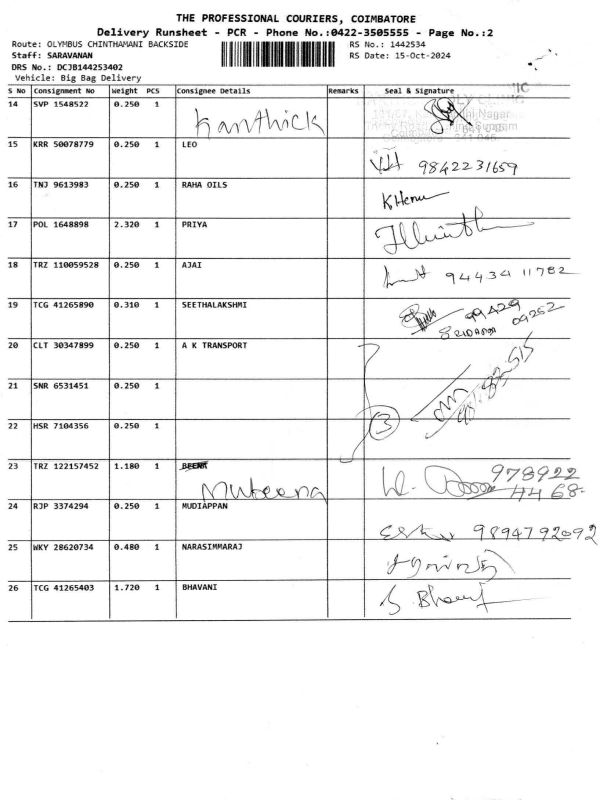 THE PROFESSIONAL COURIERS, COIMBATORE
Delivery Runsheet - PCR - Phone No.:0422-3505555 - Page No.:2
Route: OLYMBUS CHINTHAMANI BACKSIDE RS No.: 1442534
Staff: SARAVANAN RS Date: 15-Oct-2024
DRS No.: DCJB144253402
Vehicle: Big Bag Delivery
S No Consignment No Weight PCS Consignee Details Remarks Seal & Signature
14 SVP 1548522 0.250 1 Kanthick
15 KRR 50078779 0.250 1 LEO 9842231659
16 TNJ 9613983 0.250 1 RAHA OILS
17 POL 1648898 2.320 1 PRIYA
18 TRZ 110059528 0.250 1 AJAI 94434 11782
19 TCG 41265890 0.310 1 SEETHALAKSHMI 99429
09252
20 CLT 30347899 0.250 1 A K TRANSPORT
21 SNR 6531451 0.250 1
22 HSR 7104356 0.250 1 3
23 TRZ 122157452 1.180 1 BEENA 978922
Mubeena 4468
24 RJP 3374294 0.250 1 MUDIAPPAN 9894792092
25 WKY 28620734 0.480 1 NARASIMMARAJ
26 TCG 41265403 1.720 1 BHAVANI